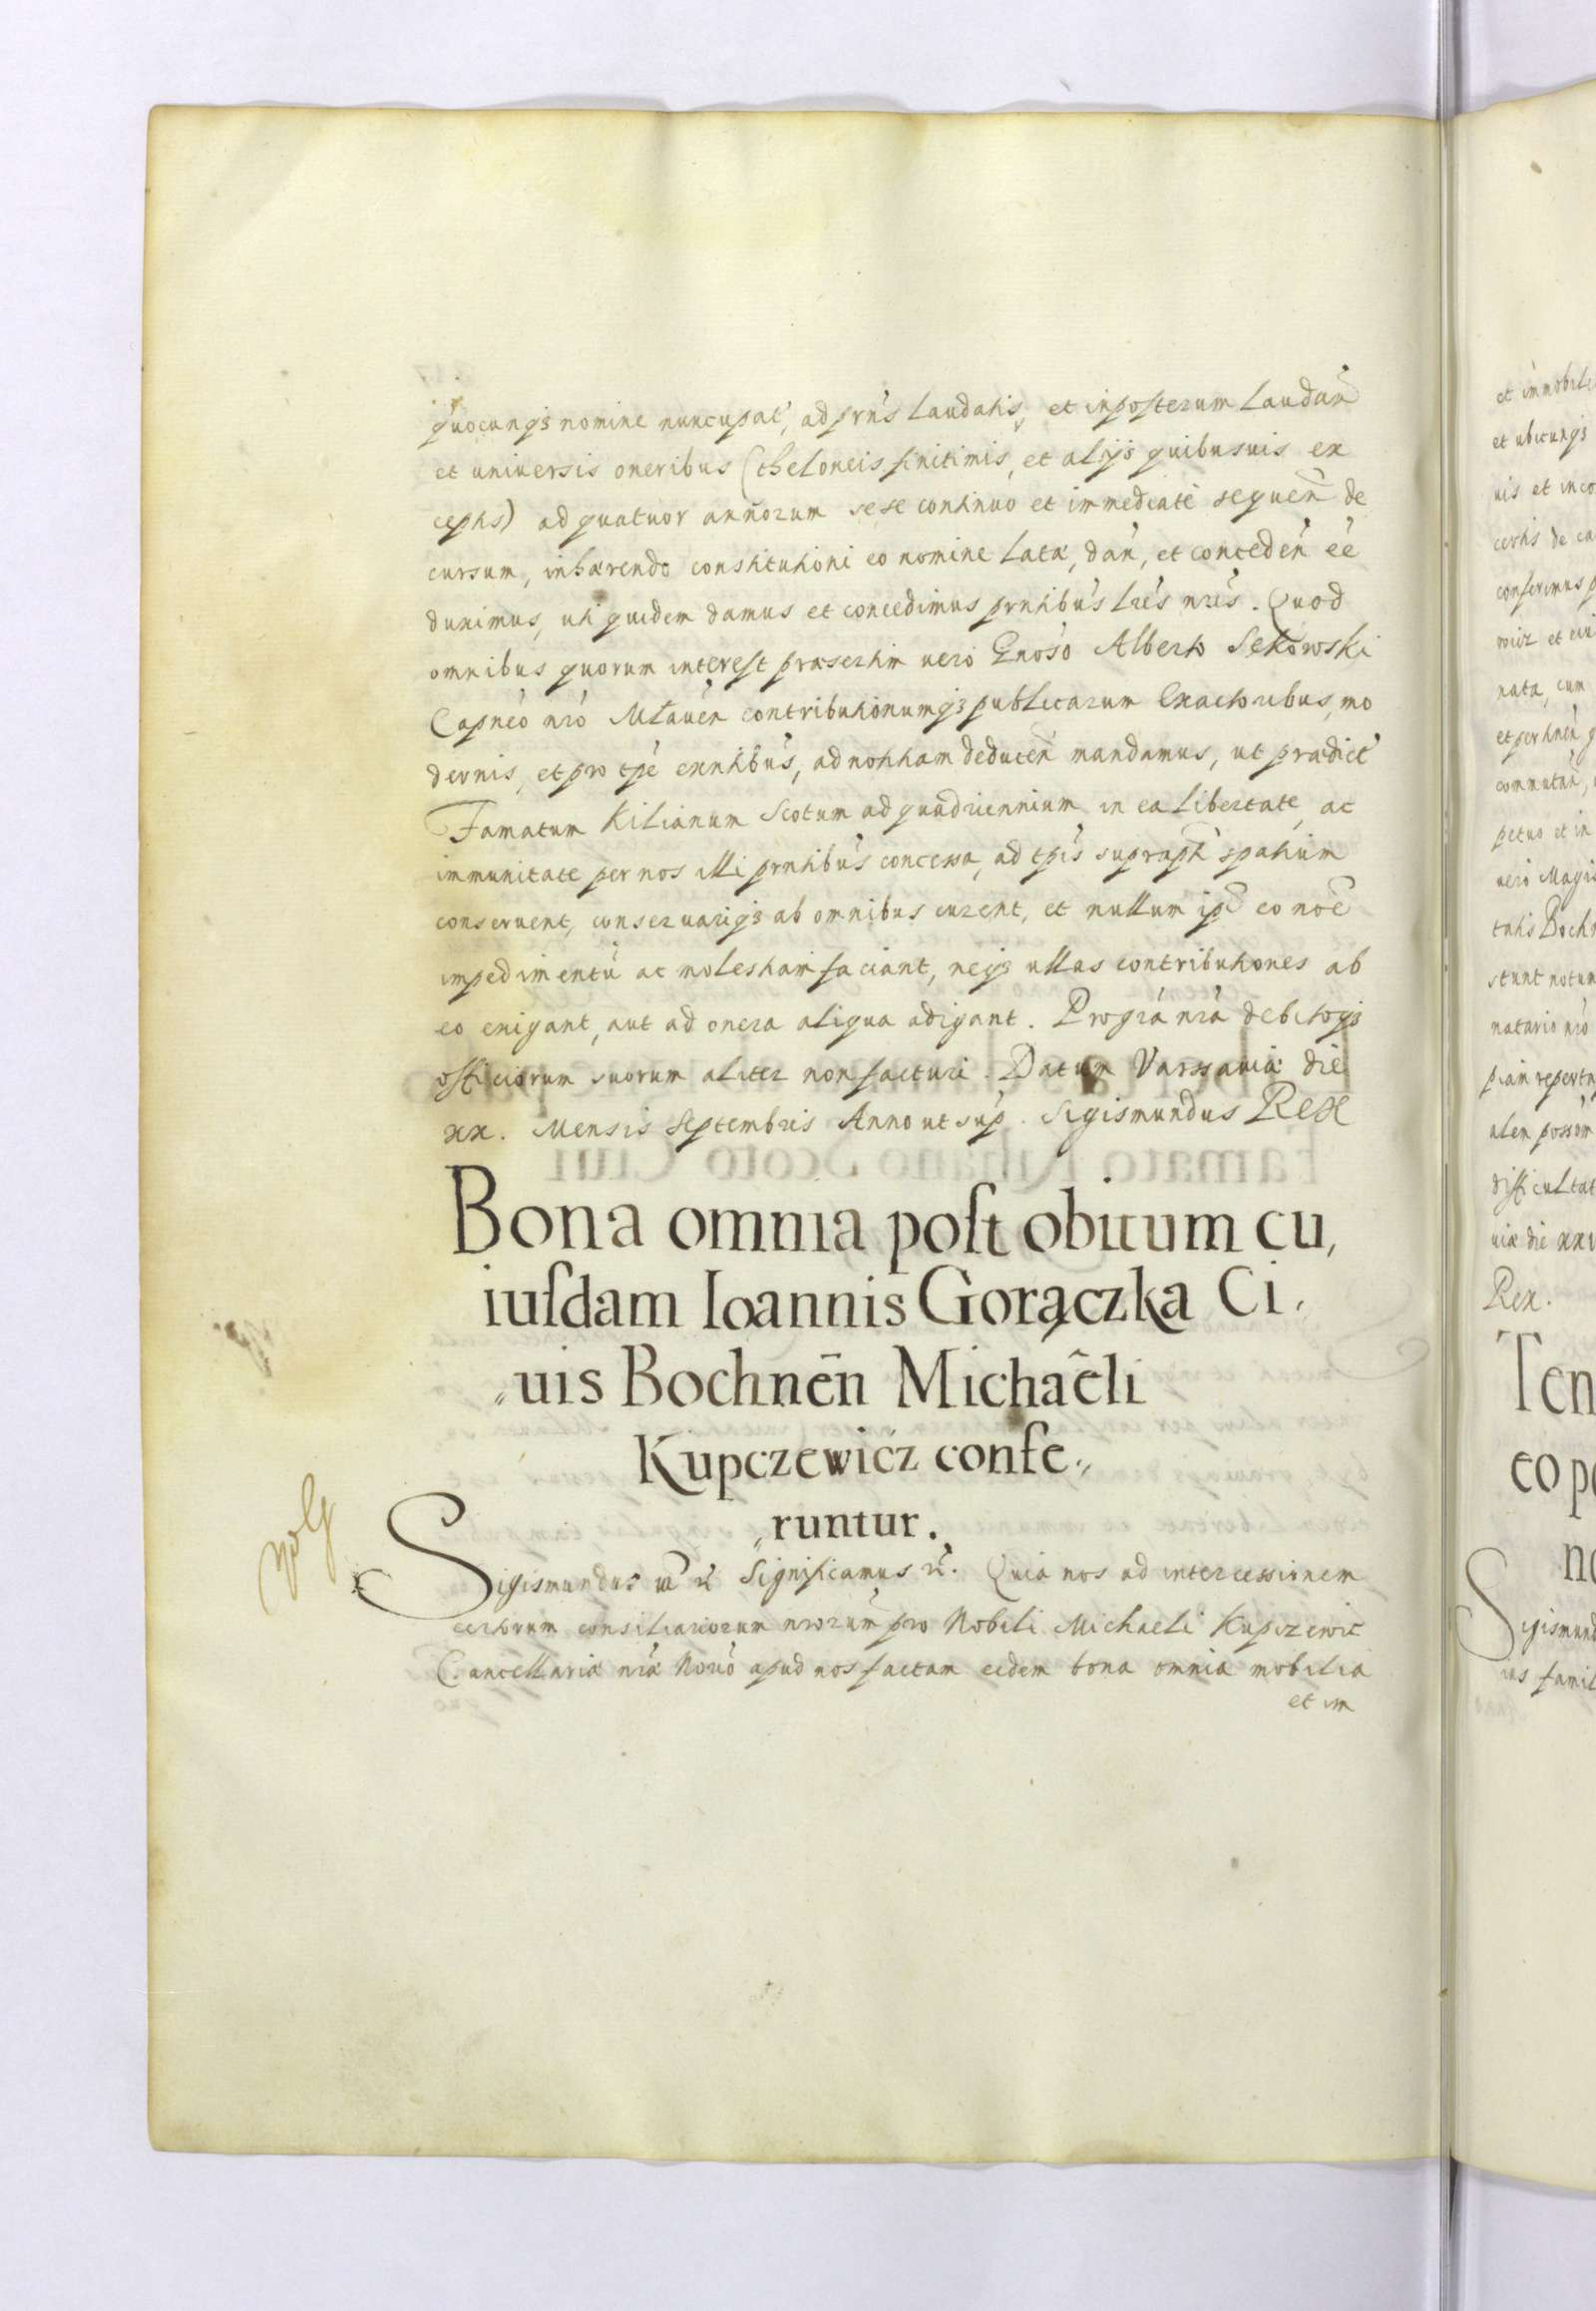 quocunqȝ nomine nuncupat, ad prns laudatis, et inposterum laudan
et universis oneribus (theloneis finitimis, et alijs quibusuis ex
ceptis) ad quatuor annorum sese continuo et immediatè sequen de
cursum, inhærendo constitutioni eo nomine latæ, dan, et conceden ee
dunimus, uti quidem damus et concedimus prntibus lrēs nrēs. Quod
omnibus quorum interest præsertim uero Gnoso Alberto Sekowski
Capneo nro Mlauen contributionumqȝ publicarum Exactoribus, mo
dernis, et pro tpe exntibus, ad notitiam deducen mandamus, ut prædict
Famatum Kilianum Scotum ad quadriennium in ea libertate, ac
immunitate per nos illi prntibus concessa, ad tpis suprapti spatium
conseruent, conseruariqȝ ab omnibus curent, et nullum ip eo noe
impedimentū ac molestiam faciant, neqȝ ullas contributiones ab
eo exigant, aut ad onera aliqua adigant. Pro gra nra debitoqȝ
officiorum suorum aliter non facturi. Datum Varssauiæ die
xx. Mensis Septembris Anno ut sup. Sigismundus Rex
Bona omnia post obitum cu,
iusdam Ioannis Gorączka Ci,
„uis Bochnēn Michaêli
Kupczewicz confe„
„runtur.
Sigismundus Significamus Quia nos ad intercessionem
certorum consiliariorum nrorum pro Nobili Michaeli Kupczewic
Cancellariæ nræ Norio apud nos factam eidem bona omnia mobilia
et im
et immobili
et ubicunqȝ
uis et inco
certis de ca
conferimus p
wicz et
nata, cum
et pertinen q
commutan,
petuo et in
uero Magis
tatis Bochn
stunt notum
natario nro
piam repertn
alen possom
difficultat
uiæ die xxv
Rex.
Ten
eo pe
no
Sigismund
ias famil